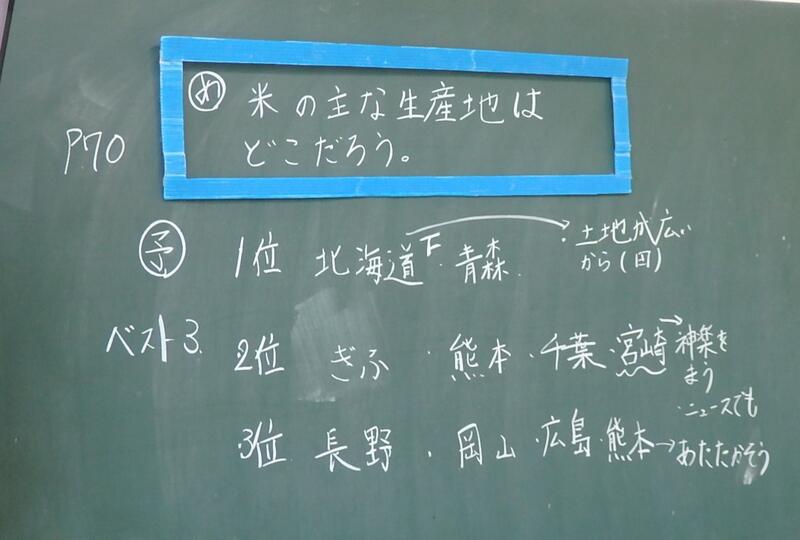 め 米の主な生産地は
どこだろう。
P70
予 1位 北海道 青森
・土地が広い
から(田)
ベスト3
2位 ぎふ ・熊本・千葉・宮崎→神楽を
まう
・ニュースでも
3位 長野 ・岡山・広島・熊本→あたたかそう